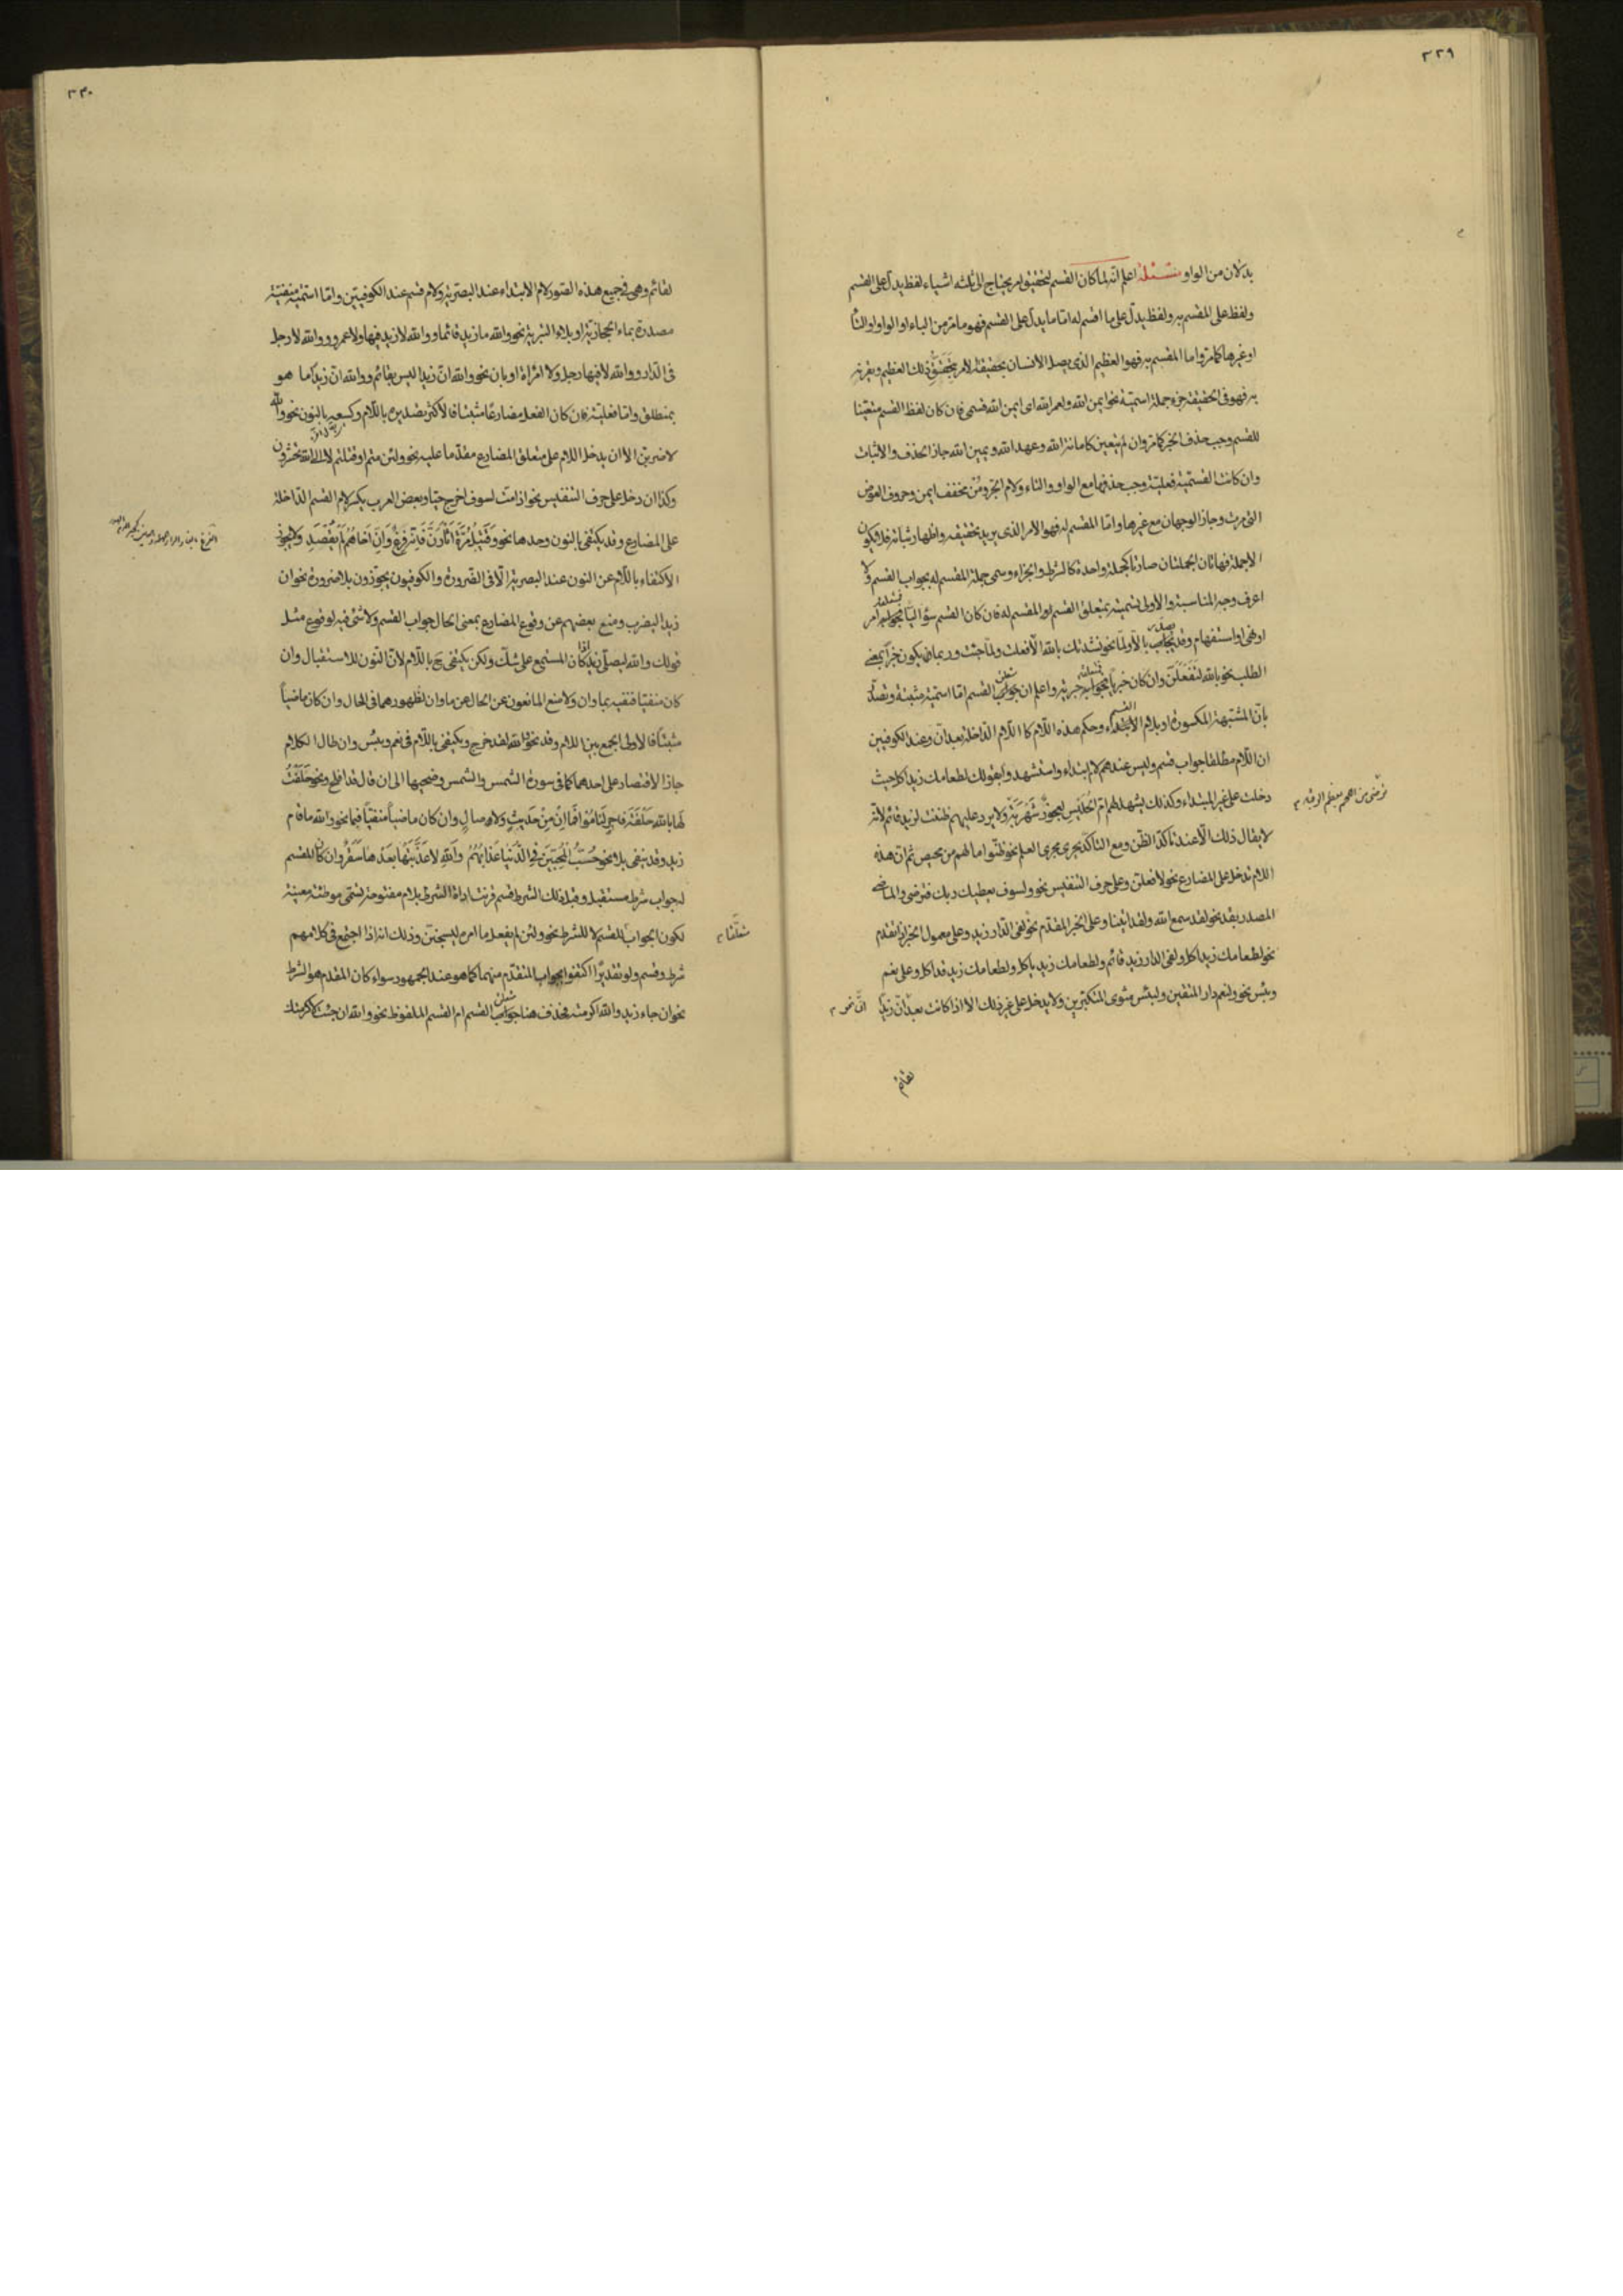 ٣٢٩
بدلان من الواو مسئلة اعلم انه لما كان القسم لتحقيق امر يحتاج الى ثلثه اشياء لفظ يدل على القسم
ولفظ على المقسم به ولفظ يدل على ما اقسم له اما ما يدل على القسم فهو ما مر من الباء او الواو او التا
او غيرها كما مر واما المقسم به فهو العظيم الذى يصل الانسان بحقيقة الامر بتحقق ذلك العظيم
به فهو فى الحقيقة جزء جملة اسمية نحو ايمن الله ولعمر الله اى ايمن الله قسمى فان كان لفظ القسم متعينا
للقسم وجب حذف الخبر كما مر وان لم يتعين كامانة الله وعهد الله ويمين الله جاز الحذف والاثبات
وان كانت القسمية فعلية وجب حذفها مع الواو والتاء ولام الجر ومن مخفف ايمن وحروف العوض
التى مرت وجاز الوجهان مع غيرها واما المقسم له فهو الامر الذى يريد تحقيقه واظهار ثباته فلا يكون
الا جملة فهاتان الجملتان صارتا كجملة واحدة كالشرط والجزاء وسمى جملة المقسم له بجواب القسم ولا
اعرف وجه المناسبة والاولى تسميته بمتعلق القسم او المقسم له فان كان القسم سؤاليا امر
او نهى او استفهام وقد يجاب بالا ولما نحو نشدتك بالله الا فعلت ولما جئت وربما يكون خبرا بمعنى
الطلب نحو بالله لتفعلن وان كان خبريا خبرية واعلم ان جواب القسم اما اسمية مثبتة وتصدر
بان المشبهة المكسورة او بلام الابتداء وحكم هذه اللام كا اللام الداخلة بعد ان وعند الكوفيين
ان اللام مطلقا جواب قسم وليس عندهم لام ابتداء واستشهدوا بقولك لطعامك زيد اكل حيث
دخلت على غير المبتداء وكذلك يشهد لهم ام الحليس لعجوز شهربه ولا يرد عليهم ظننت لزيد قائم لانه
لا يقال ذلك الا عند تاكد الظن ومع التاكد يجرى مجرى العلم نحو ظنوا ما لهم من محيص ثم ان هذه
اللام تدخل على المضارع نحو لافعلن وعلى حرف التنفيس نحو ولسوف يعطيك ربك فترضى والماضى
المصدر بقد نحو لقد سمع الله ولقد اتينا وعلى الخبر المقدم نحو لفى الدار زيد وعلى معمول الخبر اذا تقدم
نحو لطعامك زيد اكل ولفى الدار زيد قائم ولطعامك زيد ياكل ولطعامك زيد قد اكل وعلى نعم
وبئس نحو ولنعم دار المتقين ولبئس مثوى المتكبرين ولا يدخل على غير ذلك الا اذا كانت بعد ان زيدا
ترضى من اللحم بعظم الرقبه
لقائم
٣٣٠
لقائم وهى فى جميع هذه الصور لام الابتداء عند البصرية ولام قسم عند الكوفيين واما اسمية منفية
مصدرة بماء الحجازية او بلاء التبرية نحو والله ما زيد قائما ووالله لا زيد فيها ولا عمرو ووالله لا رجل
فى الدار ووالله لا فيها رجل ولا امراة او بان نحو والله ان زيدا ليس بقائم ووالله ان زيدا ما هو
بمنطلق واما فعلية فان كان الفعل مضارعا مثبتا فالاكثر تصديره باللام وكسعه بالنون نحو والله
لاضربن الا ان يدخل اللام على متعلق المضارع مقدما عليه نحو ولئن متم او قتلتم لالى الله تحشرون
وكذا ان دخل على حرف التنفيس نحو اذا مت لسوف اخرج حيا وبعض العرب يكسر لام القسم الداخلة
على المضارع وقد يكتفى بالنون وحدها نحو وقتيل مرة اثارن فانه فرغ وان اخاهم لم يقصد ولا يجوز
الاكتفاء باللام عن النون عند البصرية الا فى الضرورة والكوفيون يجوزون بلا ضرورة نحو ان
زيدا ليضرب ومنع بعضهم عن وقوع المضارع بمعنى الحال جواب القسم ولا شئ فيه لوقوع مثل
قولك والله ليصلى زيد كان المستمع على شك ولكن يكتفى ح باللام لان النون للاستقبال وان
كان منفيا فنفيه بما وان ولا منع المانعون عن الحال عن ما وان لظهورهما فى الحال وان كان ماضيا
مثبتا فالاولى الجمع بين اللام وقد نحو والله لقد خرج ويكتفى باللام فى نعم وبئس وان طال الكلام
جاز الاقتصار على احدهما كما فى سورة الشمس والشمس وضحيها الى ان قال قد افلح ونحو حلفت
لها بالله حلفة فاجر لناموا فما ان من حديث ولا صال وان كان ماضيا منفيا فبما نحو والله ما قام
زيد وقد ينفى بلا نحو حسب المحبين فى الدنيا عذابهم والله لا عذبتها بعدها سقر وان كان القسم
لجواب شرط مستقبل وقبل ذلك الشرط قسم قرنت اداة الشرط بلام مفتوحة تسمى موطئة معينة
لكون الجواب للقسم لا للشرط نحو ولئن لم يفعل ما امره ليسجنن وذلك انه اذا اجتمع فى كلامهم
شرط وقسم ولو تقديرا اكتفوا بجواب المتقدم منهما كما هو عند الجمهور سواء كان المقدم هو الشرط
نحو ان جاء زيد والله اكرمته فحذف هنا جواب القسم ام القسم الملفوظ نحو والله ان جئت لاكرمتك